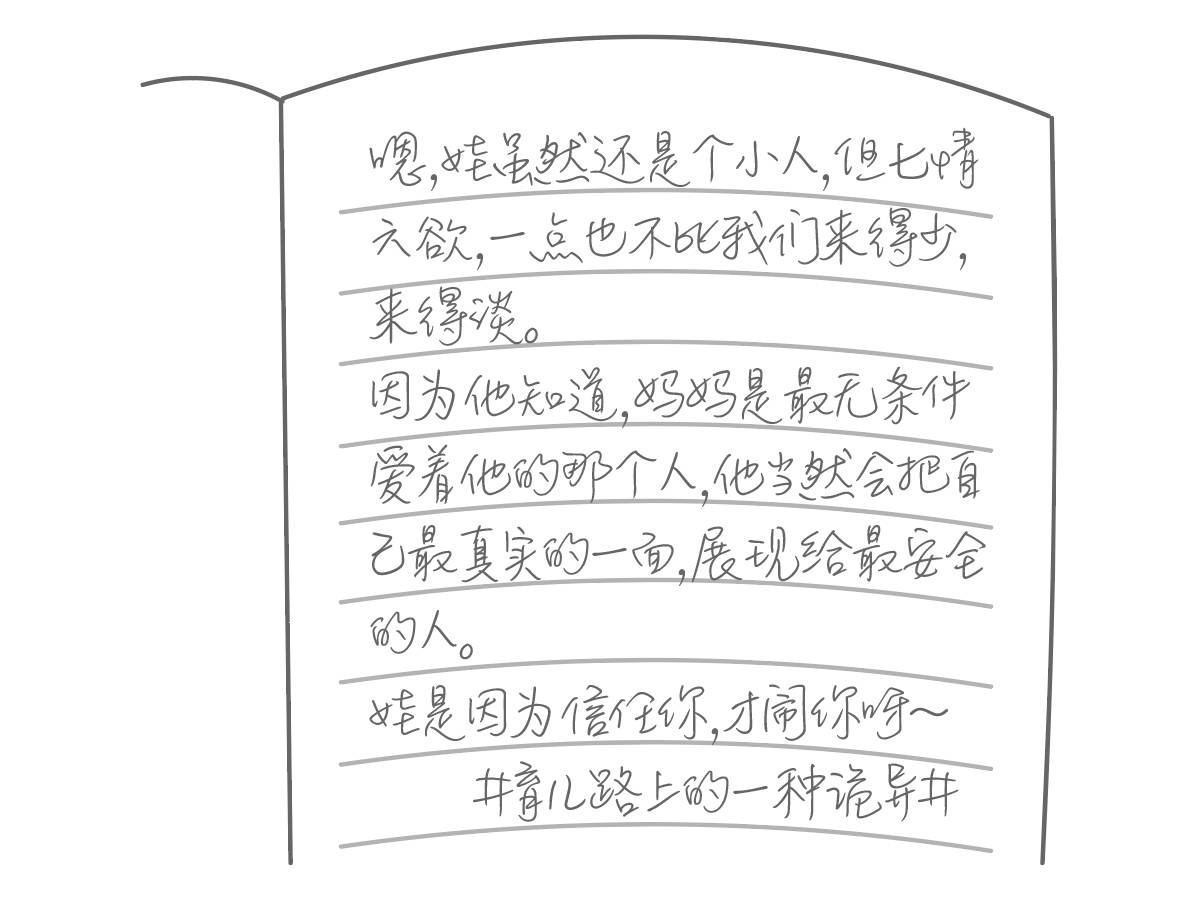 嗯,娃虽然还是个小人,但七情
六欲,一点也不比我们来得少,
来得淡。
因为他知道,妈妈是最无条件
爱着他的那个人,他当然会把自
己最真实的一面,展现给最安全
的人。
娃是因为信任你,才闹你呀～
#育儿路上的一种诡异#